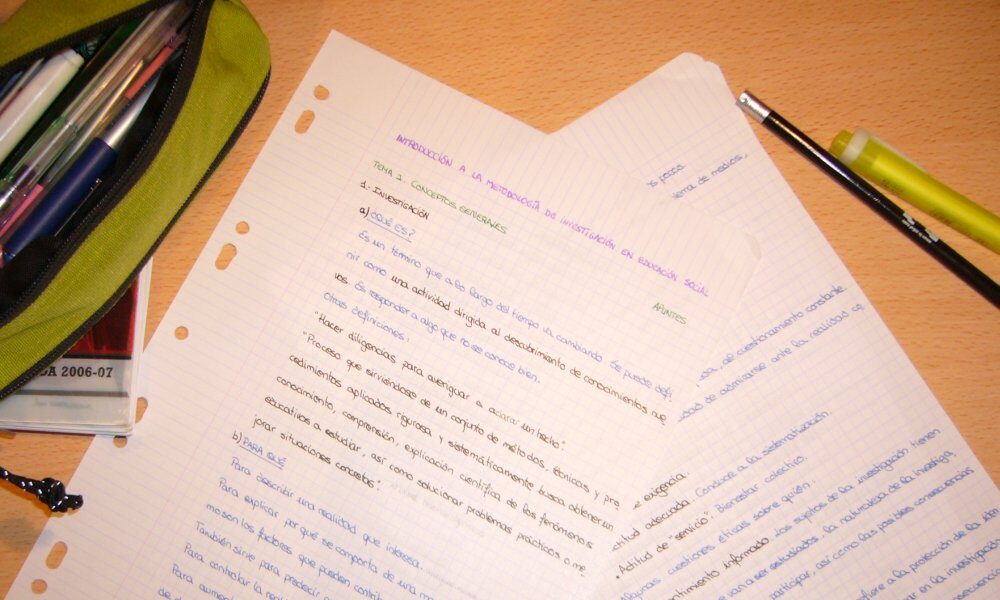 INTRODUCCIÓN A LA METODOLOGÍA DE INVESTIGACIÓN EN EDUCACIÓN SOCIAL
TEMA 1. CONCEPTOS GENERALES
APUNTES
1.- INVESTIGACIÓN
a) ¿QUÉ ES?
Es un término que a lo largo del tiempo va cambiando. Se puede defi-
nir como una actividad dirigida al descubrimiento de conocimientos nue
vos. Es responder a algo que no se conoce bien.
Otras definiciones:
"Hacer diligencias para averiguar a aclarar un hecho".
"Proceso que sirviéndose de un conjunto de métodos, técnicas y pro
cedimientos aplicados rigurosa y sistemáticamente busca obtener un
conocimiento, comprensión, explicación científica de los fenómenos
educativos a estudiar, así como solucionar problemas prácticos o me
jorar situaciones concretas".
b) PARA QUÉ
Para describir una realidad que interesa.
Para explicar por qué se comporta de una
mo son los factores que pueden
También sirve para predecir
Para controlar la
Para
de
pasos
tema de medios,
, de cuestionamiento constante.
de admirarse ante la realidad
exigencia.
adecuada. Conduce a la sistematización.
• Actitud de "servicio": Bienestar colectivo.
Algunas cuestiones éticas sobre quién.
informado. Los sujetos de la investigación tienen
van a ser estudiados, la naturaleza de la investiga
participar, así como las posibles consecuencias
a la protección de la
en la investigación
2006-07